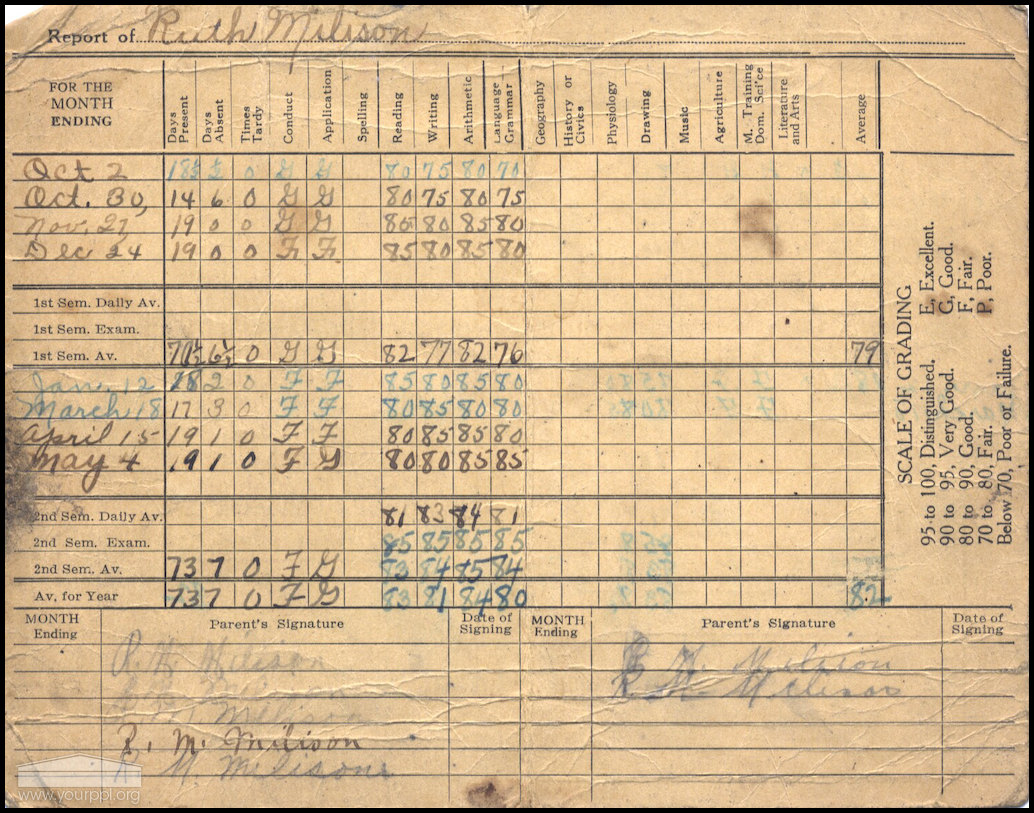 Report of Ruth Milison
FOR THE MONTH ENDING Days Present Days Absent Times Tardy Conduct Application Spelling Reading Writing Arithmetic Language Grammar Geography History or Civics Physiology Drawing Music Agriculture M. Training Dom. Sci'ce Literature and Arts Average
Oct 2 18½ ½ 0 G G 80 75 80 70
Oct. 30, 14 6 0 G G 80 75 80 75
Nov. 27, 19 0 0 G G 85 80 85 80
Dec 24 19 0 0 F F 85 80 85 80
1st Sem. Daily Av.
1st Sem. Exam.
1st Sem. Av. 70½ 6½ 0 G G 82 77 82 76 79
Jan. 12 18 2 0 F F 85 80 85 80
March 18 17 3 0 F F 80 85 80 80
April 15 19 1 0 F F 80 85 85 80
May 4 19 1 0 F G 80 80 85 85
2nd Sem. Daily Av. 81 83 84 81
2nd Sem. Exam. 85 85 85 85
2nd Sem. Av. 73 7 0 F G 83 84 85 84
Av. for Year 73 7 0 F G 83 81 84 80 82
SCALE OF GRADING
95 to 100, Distinguished. E, Excellent.
90 to 95, Very Good. G, Good.
80 to 90, Good. F, Fair.
70 to 80, Fair. P, Poor.
Below 70, Poor or Failure.
MONTH Ending Parent's Signature Date of Signing MONTH Ending Parent's Signature Date of Signing
Milison
Milison
R. M. Milison
M. Milison
www.yourppl.org